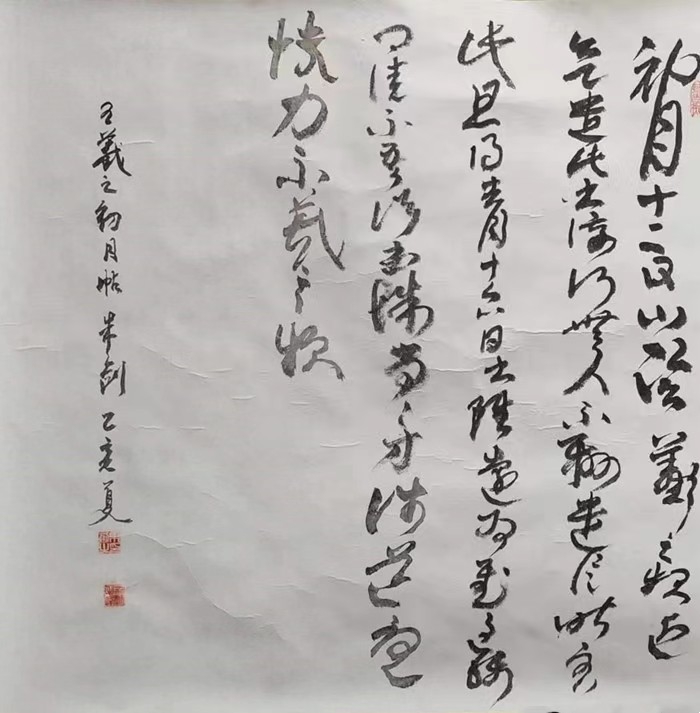 初月十二日山陰羲之報近
欲遣此書停行無人不辦遣信昨至
此旦得去月十六日書雖遠為慰過囑
卿佳不吾諸患殊劣方涉道憂
悴力不羲之報
王羲之初月帖 朱劍 己亥夏